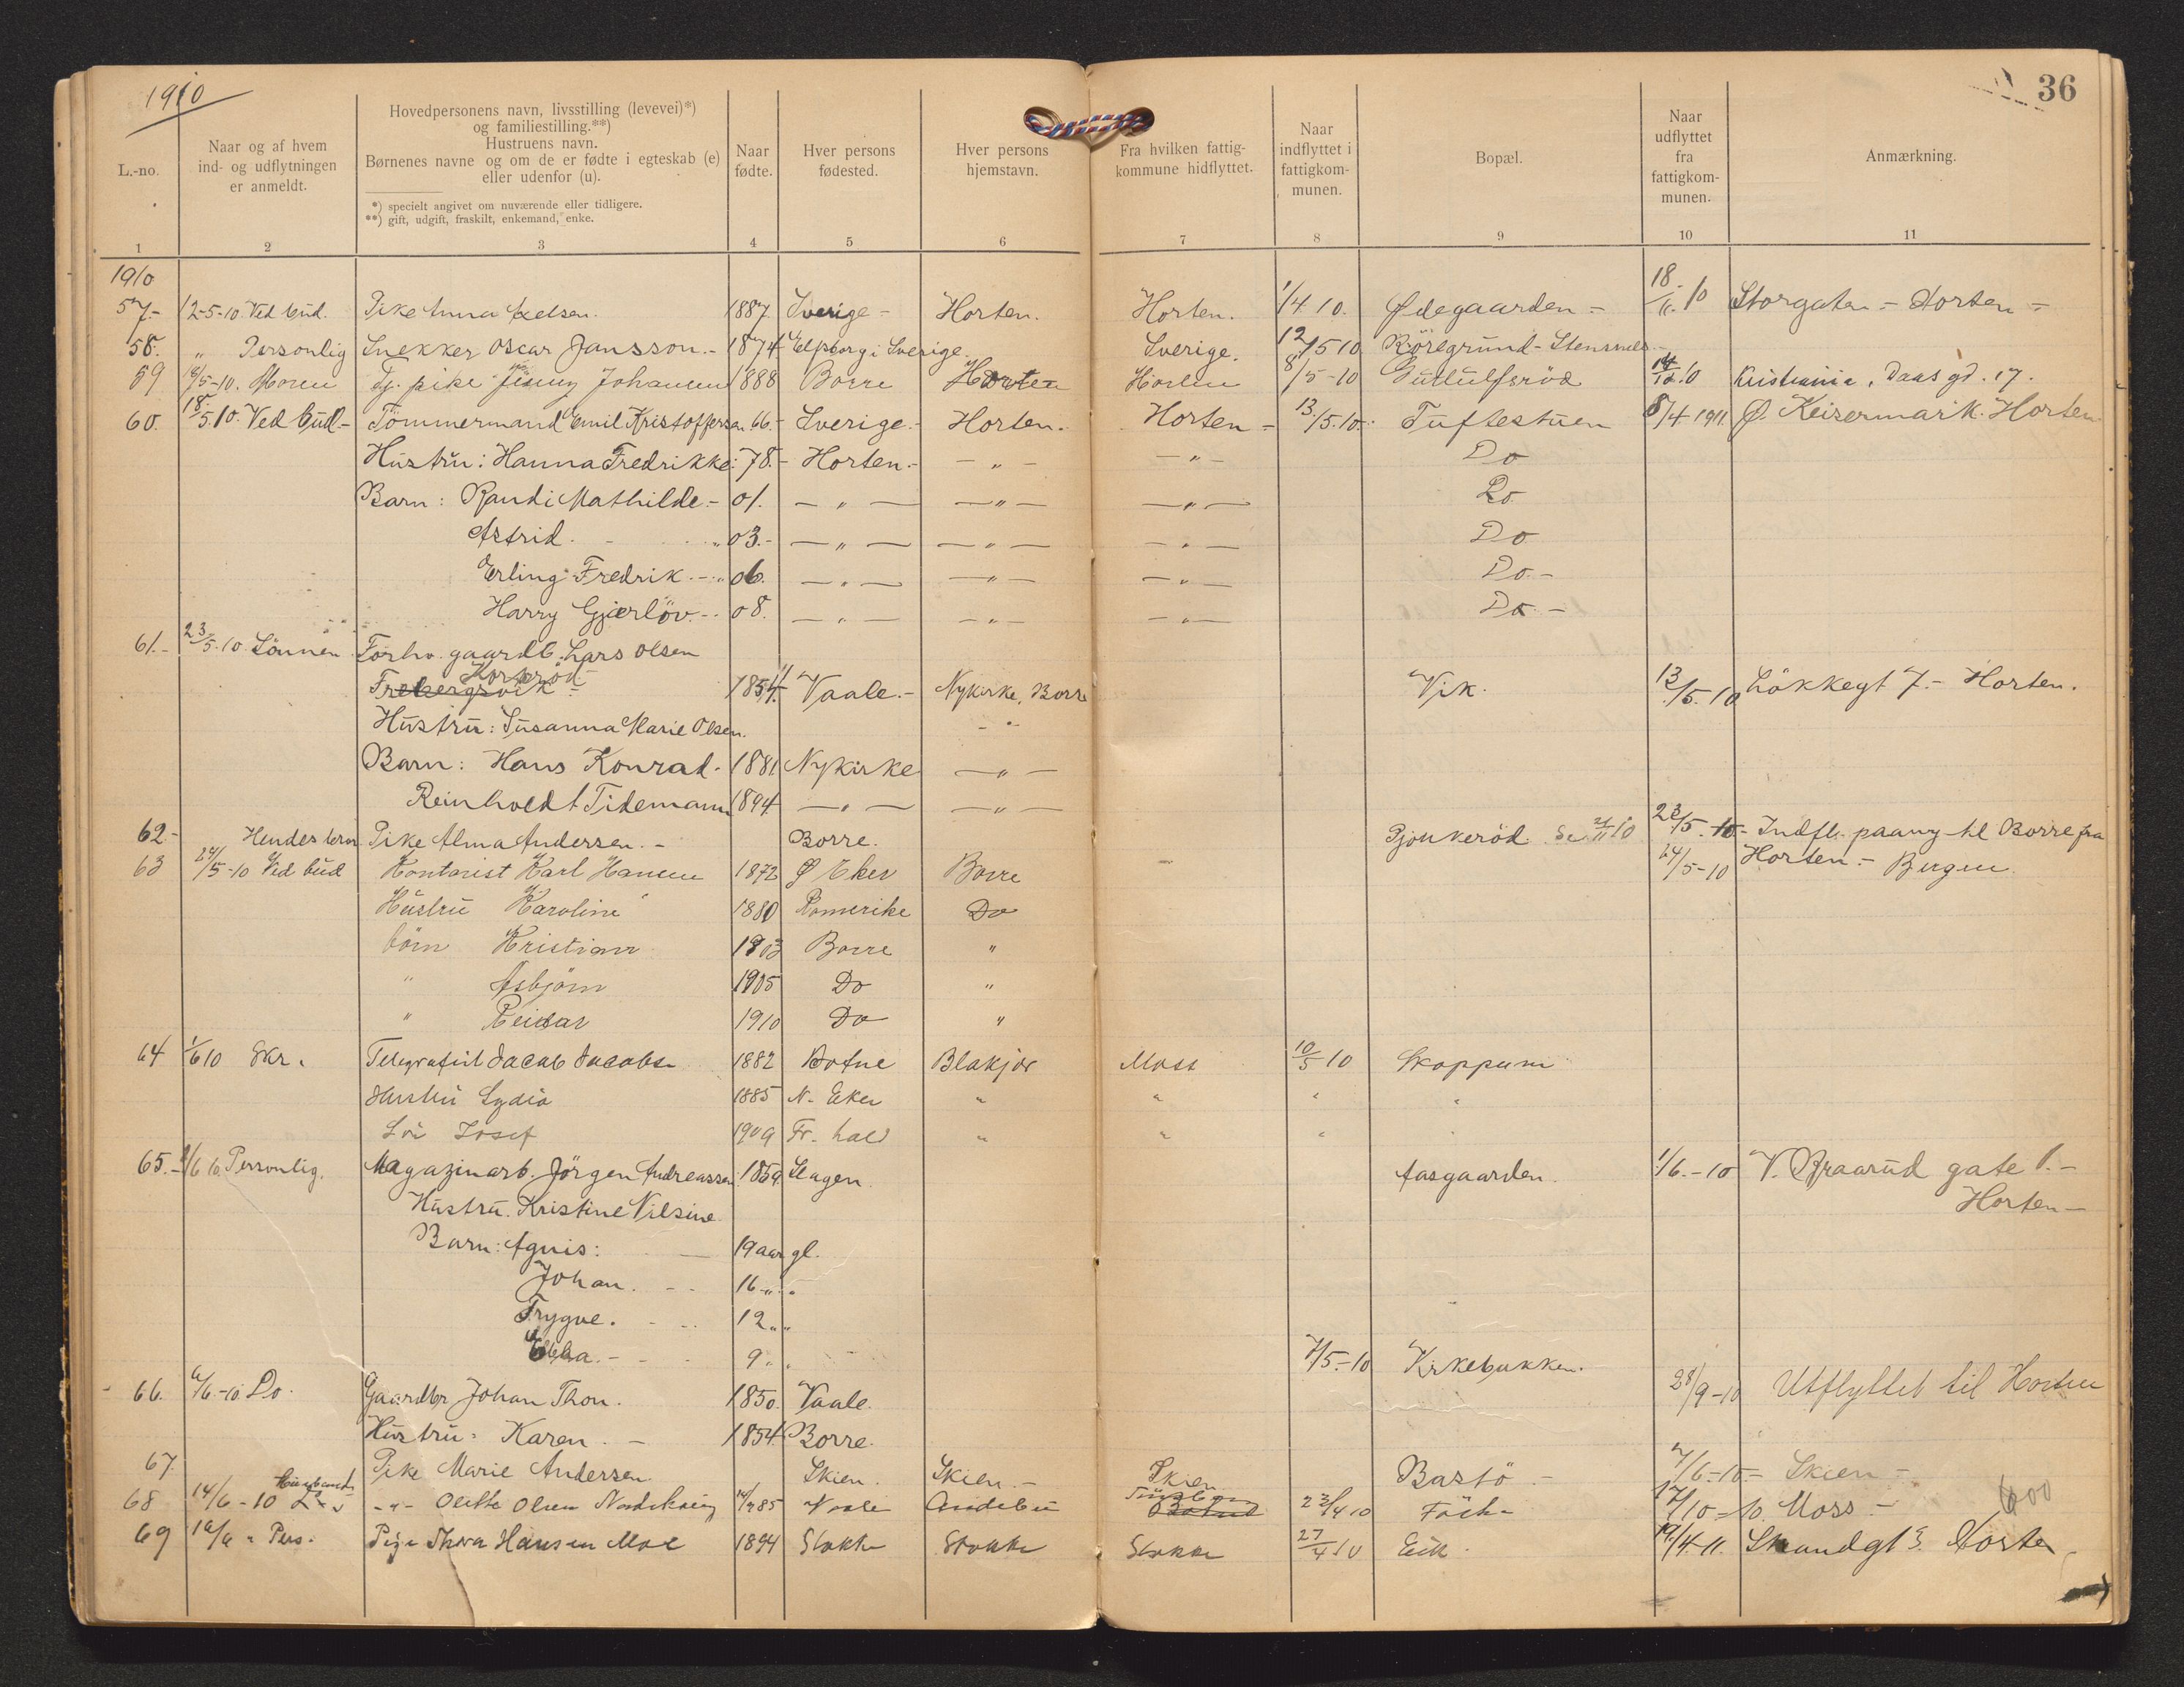 1910
36
L.-no.
Naar og af hvem
ind- og udflytningen
er anmeldt.
Hovedpersonens navn, livsstilling (levevei)*)
og familiestilling.**)
Hustruens navn.
Børnenes navne og om de er fødte i egteskab (e)
eller udenfor (u).
*) specielt angivet om nuværende eller tidligere.
**) gift, udgift, fraskilt, enkemand, enke.
Naar
fødte.
Hver persons
fødested.
Hver persons
hjemstavn.
Fra hvilken fattig-
kommune hidflyttet.
Naar
indflyttet i
fattigkom-
munen.
Bopæl.
Naar
udflyttet
fra
fattigkom-
munen.
Anmærkning.
1 2 3 4 5 6 7 8 9 10 11
1910
57.- 12-5-10. Ved bud. Pike Anna Axelsen. 1887 Sverige - Horten. Horten. 1/4 10. Ødegaarden - 18/11.10 Storgaten - Horten -
58. " Personlig Snekker Oscar Jansson.- 1874 Elfsborg i Sverige. Sverige. 12/5 10 Rörlegrund-
59 18/5-10. Moren Tj. pike Jenny Johansen 1888 Borre Horten Horten 8/5-10 Gutlulfsröd 14/12 10 Kristiania, Daas gd. 17.
60. 18/5.10. Ved bud- Tömmermand Emil Kristoffersen 66.- Sverige.- Horten. Horten - 13./5.10. Tuftestuen 8/4-1911. Ø. Keisermark. Horten.
Hustru: Hanna Fredrikke: 78.- Horten.- - " - - " - Do
Barn: Randi Mathilde.- 01. - " - - " - - " - Do.
Astrid. - " 03.- - " - - " - - " - Do
Erling Fredrik.- " 06. - " - - " - - " - Do.-
Harry Gjerlöv.- 08. - " - - " - - " - Do -
61.- 23/5.10. Sönnen. Forhv. gaardb. Lars Olsen
Korteröd
Frebergsvik - 1854. Vaale.- Nykirke, Borre Vik. 13/5.10 Lökkegt 7.- Horten.
Hustru: Susanna Marie Olsen. - " -
Barn: Hans Konrad. 1881 Nykirke - " -
Reinholdt Tidemann 1894 - " - - " -
62.- Pike Alma Andersen.- Borre. 10 23/5.10- Indfl. paany til Borre fra
63 24/5-10 Ved bud Kontorist Karl Hansen 1872 Ø Eker Borre 24/5-10 Horten.- Bergen.
Hustru Karoline 1880 Romerike Do
börn Kristian 1903 Borre "
" Asbjörn 1905 Do "
" Reidar 1910 Do "
64 1/6 10 Skr. Telegrafist Jacob Jacobsen 1882 Blakjer Moss 10/5 10 Skoppum
Hustru Lydia 1885 N. Eker " " " "
Sön Josef 1909 Fr. hald " " " "
65.- Personlig. Magazinarb. Jörgen Andreassen. 1859. Slagen. Aasgaarden. 1/6.-10 V. Braarud gate 1.-
Hustru. Kristine Nilsine. Horten-
Barn: Agnis: - 19 aar gl.
Johan. - - 16 " "
Trygve. - - 12 " "
Ebba. - - 9 " "
7/5.-10 Kirkebakken.
66. 6/6.-10. Do. Gaardbr Johan Thon. 1850. Vaale. 28/9-10 Utflyttet til Horten
Hustru: Karen.- 1854. Borre.
67. Pike Marie Andersen. Skien. Skien.- Skien Bastö - 7/6-10- Skien -
68 14/6-10 - " - Olette Olsen 14/9 85 Vaale Andebu 23/4 10 17/10-10. Moss - 600
69 " Pers. Pige Thora Hansen Moe 1894 Stokke Stokke Stokke 27/4 10 Eik. 19/4 11. Horten